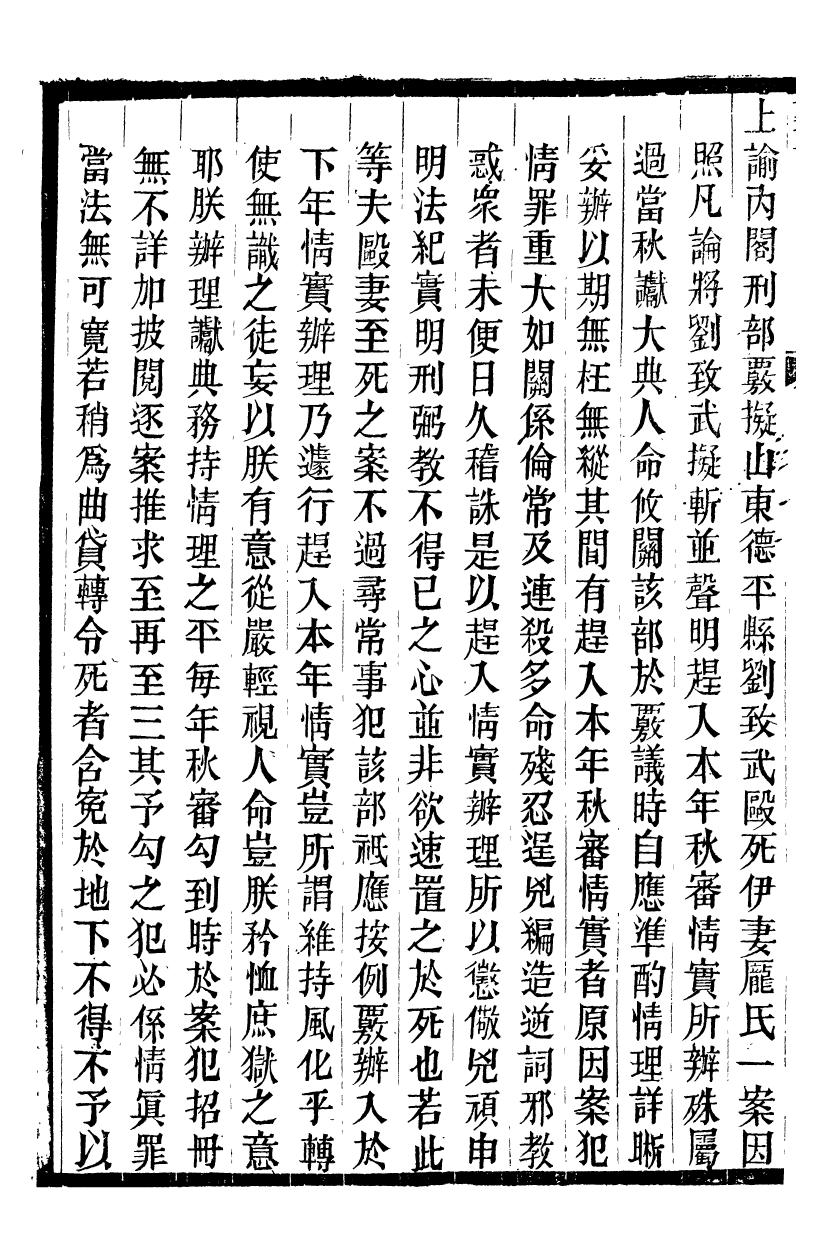 上諭內閣刑部覈擬山東德平縣劉致武毆死伊妻龐氏一案因
照凡論將劉致武擬斬並聲明趕入本年秋審情實所辦殊屬
過當秋讞大典人命攸關該部於覈議時自應準酌情理詳晰
妥辦以期無枉無縱其間有趕入本年秋審情實者原因案犯
情罪重大如關係倫常及連殺多命殘忍逞兇編造逆詞邪教
惑衆者未便日久稽誅是以趕入情實辦理所以懲儆兇頑申
明法紀實明刑弼教不得已之心並非欲速置之於死也若此
等夫毆妻至死之案不過尋常事犯該部祗應按例覈辦入於
下年情實辦理乃遽行趕入本年情實豈所謂維持風化乎轉
使無識之徒妄以朕有意從嚴輕視人命豈朕矜恤庶獄之意
耶朕辦理讞典務持情理之平每年秋審勾到時於案犯招冊
無不詳加披閱逐案推求至再至三其予勾之犯必係情眞罪
當法無可寬若稍爲曲貸轉令死者含寃於地下不得不予以